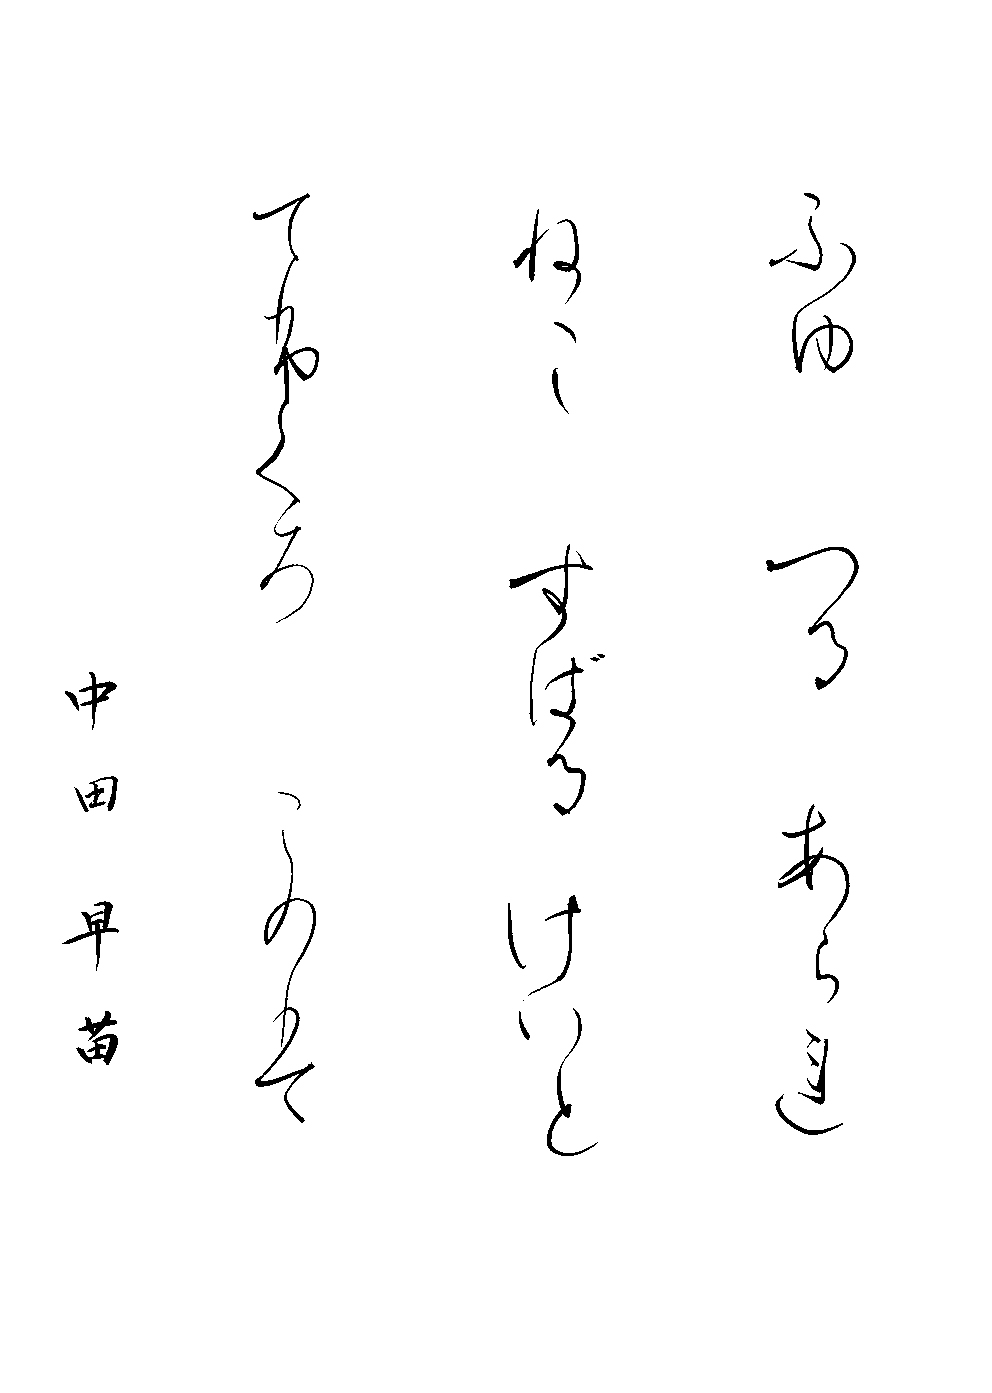 ふゆ つる あられ
ねこ すばる けいと
てふくろ このは
中田 早苗